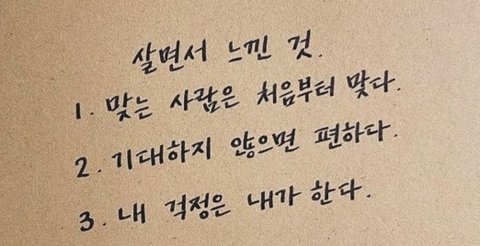 살면서 느낀 것.
1. 맞는 사람은 처음부터 맞다.
2. 기대하지 않으면 편하다.
3. 내 걱정은 내가 한다.